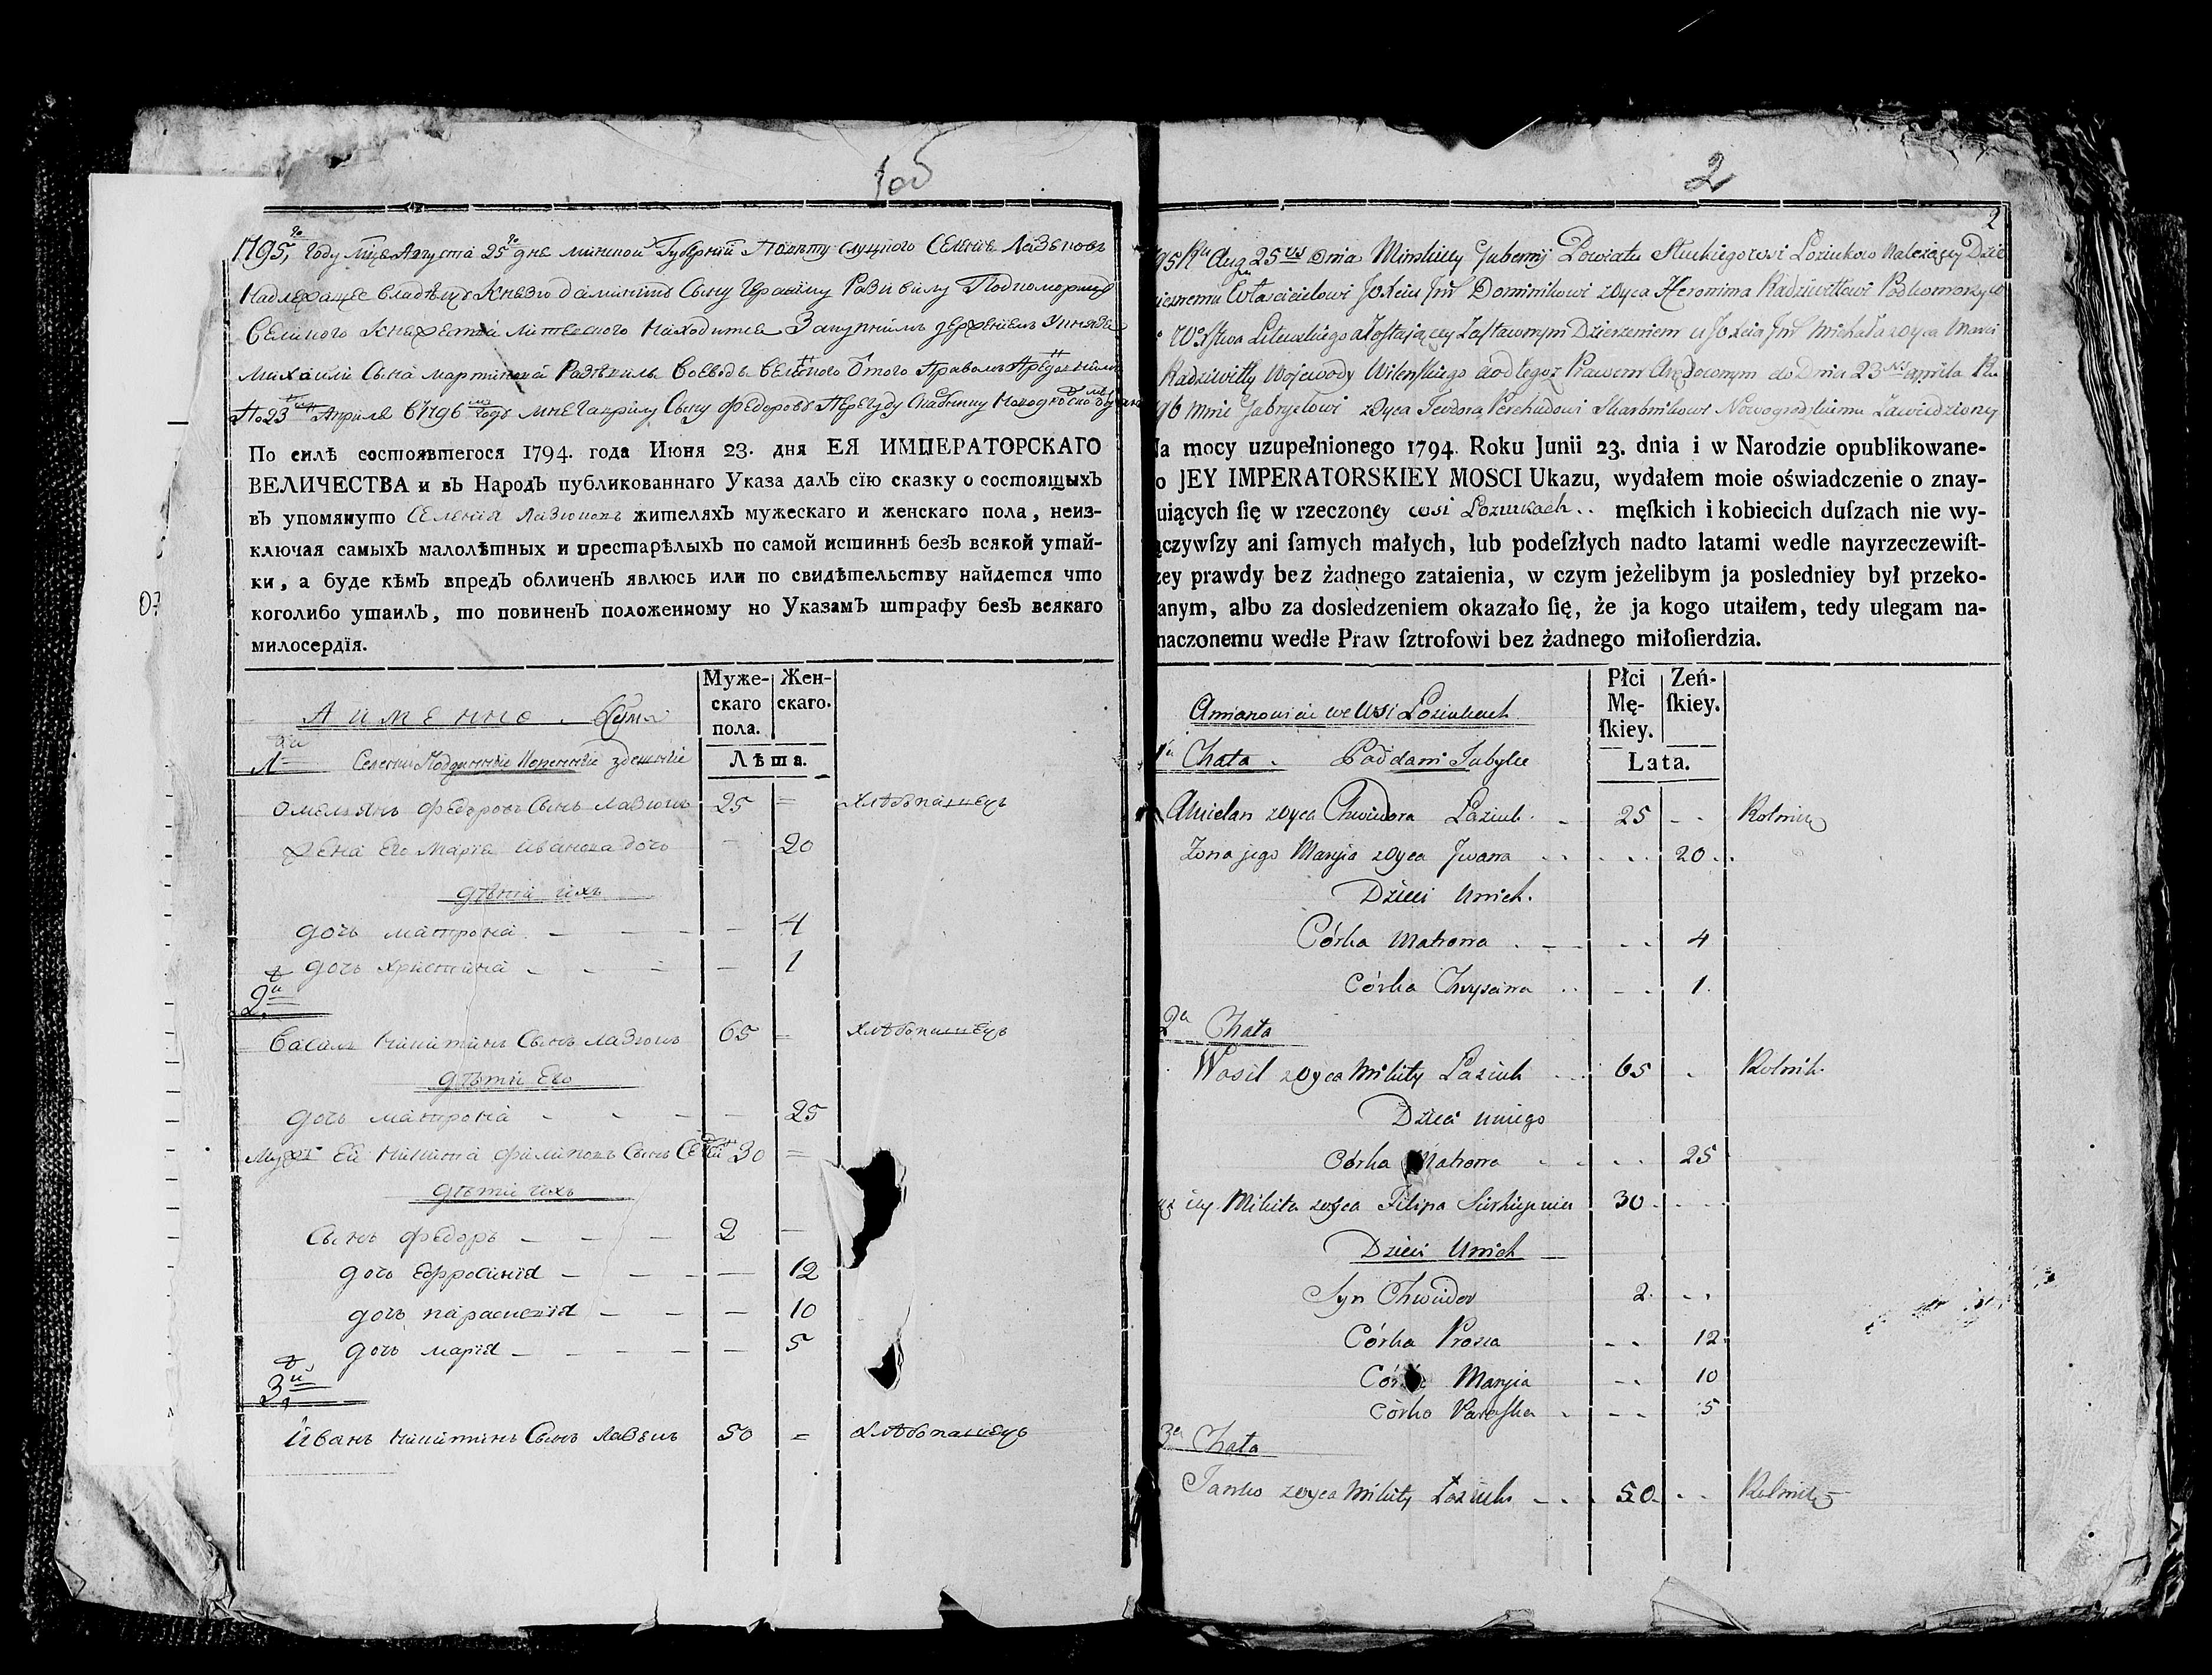 2
2
1795, году м̃ца Августа 25 дня Минской Губернїи Павѣту слуцкого Селенїе Лазюковъ
Надлежащее владѣнцу Князю доминику Сыну Геранїму Радивилу Подкоморию
Великого Княжества литовского находится Закупнымъ держенїемъ У князя
михаила Сына мартина Радзивила Воеводы Виленского Отого Правомъ
По 23 Апрѣля 1796 году мне Гаврилу Сыну Федорову Перегуду
По силѣ состоявшегося 1794. года Июня 23. дня ЕЯ ИМПЕРАТОРСКАГО
ВЕЛИЧЕСТВА и въ НародЪ публикованнаго Указа далЪ сїю сказку о состоящыхЪ
въ упомянуто Селенїя Лазюкохъ жителяхЪ мужескаго и женскаго пола, неиз-
ключая самыхЪ малолѣтныхъ и престарѣлыхЪ по самой истиннѣ безЪ всякой утай-
ки, а буде кѣмЪ впредЪ обличенЪ явлюсь или по свидѣтельству найдется что
коголибо утаилЪ, то повиненЪ положенному по УказамЪ штрафу безЪ всякаго
милосердїя.
А имѣнно
Муже-
скаго
пола.
Жен-
скаго.
Лѣта.
1
Омелянъ Федоровъ Сынъ Лазюкъ 25 = хлѣбопашецъ
жена Его Марїя Иванова дочь – 20
дѣти ихъ
дочь матрона – – – – 4
дочь христина – – – – 1
2
Васил Никитинъ Сынъ Лазюкъ 65 = хлѣбопашецъ
дѣти Его
дочь матрона – – – – 25
мужъ Ей Никита филиповъ Сынъ 30 =
дѣти ихъ
Сынъ федоръ – – – 2 –
дочь Ефросинїя – – – – 12
дочь параскевїя – – – 10
дочь марїя – – – – – 5
3
Иванъ Никитинъ Сынъ Лазюкъ 50 = хлѣбопашецъ
95 Ru Aug 25 Dnia Minskiey Gubernij Powiatu Słuckiego wsi Loziukow Należący Dzie
icznemu Właścicielowi JO Xciu Jm Dominikowi z Oyca Heronima Radziwiłłowi Podkomorzyc
Wo Xstwa Litewskiego a zostaiącey Zastawnym Dzierżeniem u JO Xcia Jm Michała z Oyca Marci
Radziwiłły Wojewody Wileńskiego a od tegoż Prawem Arędownym do Dnia 23 Aprila Ru
96 mnie Gabryelowi z Oyca Teodora Perehudowi Skarbnikowi Nowogrodzkiemu Zawiedzioney
Na mocy uzupełnionego 1794. Roku Junii 23. dnia i w Narodzie opublikowane-
o JEY IMPERATORSKIEY MOSCI Ukazu, wydałem moie oświadczenie o znay-
uiących ſię w rzeczoney wsi Loziukach .. męſkich i kobiecich duſzach nie wy-
ączywſzy ani ſamych małych, lub podeſzłych nadto latami wedle nayrzeczewiſt-
zey prawdy bez żadnego zataienia, w czym jeżelibym ja posledniey był przeko-
anym, albo za dosledzeniem okazało ſię, że ja kogo utaiłem, tedy ulegam na-
naczonemu wedle Praw ſztrofowi bez żadnego miłoſierdzia.
Amianowicie we Wsi Loziukach
Płci
Mę-
ſkiey.
Zeń-
ſkiey.
Lata.
1a Chata . Poddani Tutejsi
Amielan z Oyca Chwiedora Laziuk . – 25 – – Rolnik
Zona jego Maryia z Oyca Jwana . . . . . 20 . .
Dzieci Unich.
Córka Matrona . – – . 4
Córka Chrysćina . . – – . 1.
2a Chata
Wasil z Oyca Mikity Laziuk . . . 65 . Rolnik.
Dzieci Uniego
Córka Matrona . . . . . 25
mąż iey Mikita z Oyca Filipa 30 . – – –
Dzieci Unich
Syn Chwiedor 2. – .
Córka Prosia – – 12.
Córka Maryia – . 10
Córka Paraska . – – 5
3a Chata
Janko z Oyca Mikity Laziuk – . . 50. . . Rolnik